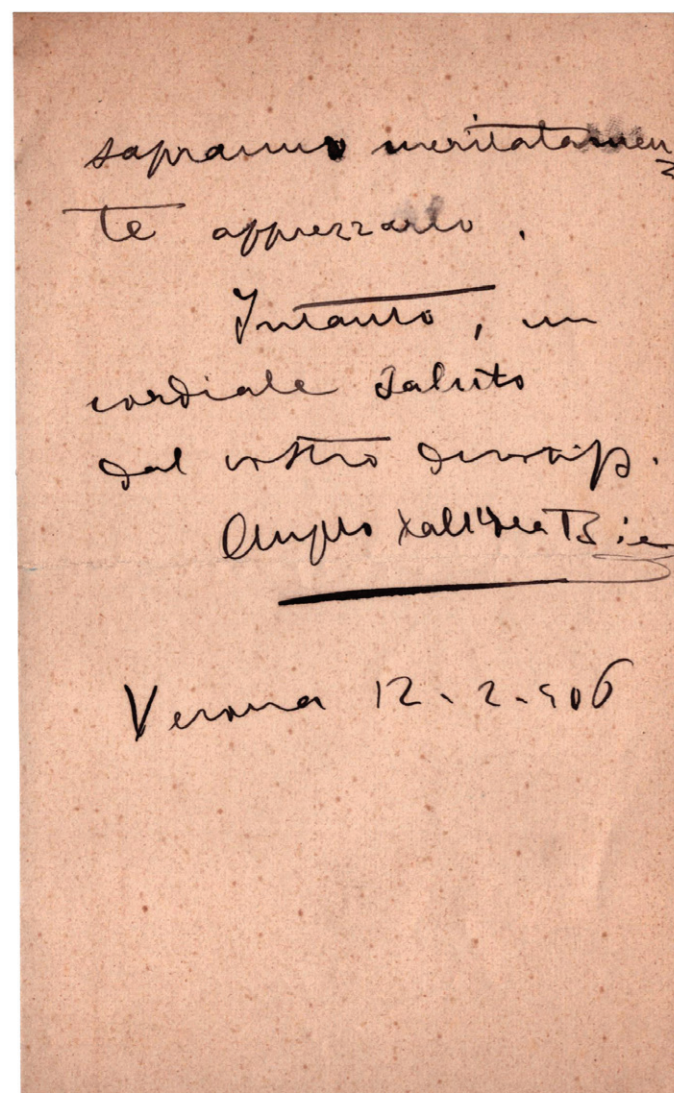 sapranno meritatamen=
te apprezzarlo.
Intanto, un
cordiale saluto
dal vostro devotiss.
Angelo Dall'Oca Bia
Verona 12.2.906